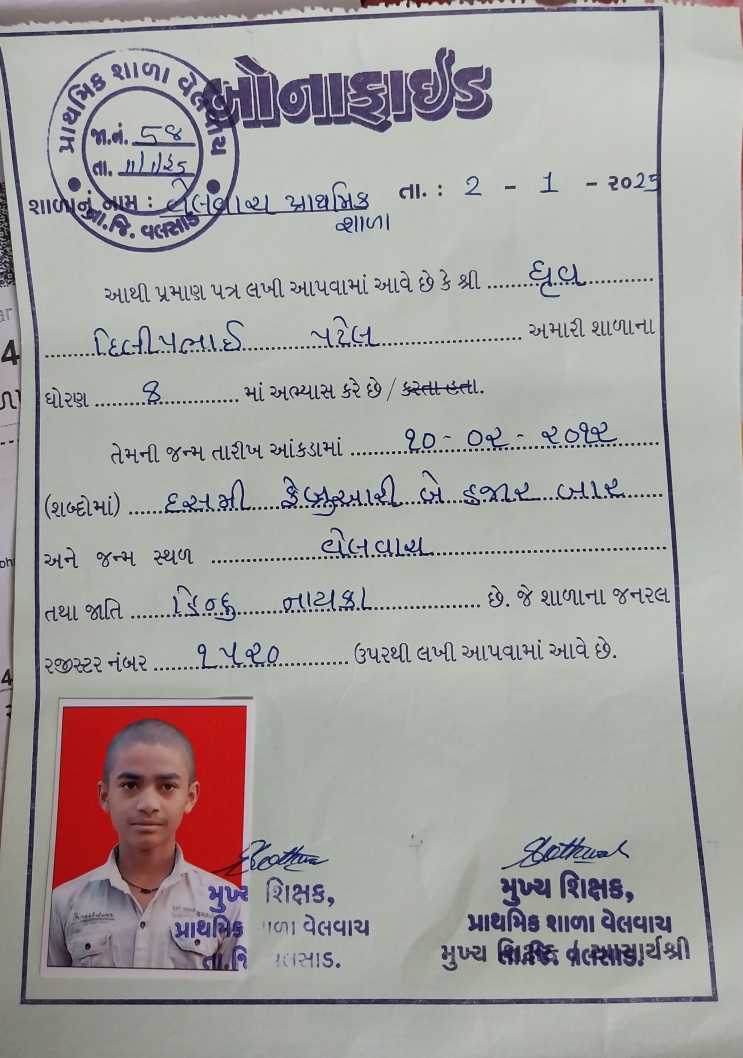 બોનાફાઇડ
પ્રાથમિક શાળા વેલવાચ
જા.નં. 58
તા. 11/1/25
તા.જિ. વલસાડ
શાળાનું નામ : વેલવાચ પ્રાથમિક શાળા તા. : 2 - 1 - ૨૦25
આથી પ્રમાણ પત્ર લખી આપવામાં આવે છે કે શ્રી ધ્રુવ
દિલીપભાઈ પટેલ અમારી શાળાના
ધોરણ 8 માં અભ્યાસ કરે છે / કરતા હતા.
તેમની જન્મ તારીખ આંકડામાં ૧૦ - ૦૨ - ૨૦૧૨
(શબ્દોમાં) દસમી ફેબ્રુઆરી બે હજાર બાર
અને જન્મ સ્થળ વેલવાચ
તથા જાતિ હિન્દુ નાયકા છે. જે શાળાના જનરલ
રજીસ્ટર નંબર ૧૫૨૦ ઉપરથી લખી આપવામાં આવે છે.
મુખ્ય શિક્ષક,
પ્રાથમિક શાળા વેલવાચ
તા.જિ વલસાડ.
મુખ્ય શિક્ષક,
પ્રાથમિક શાળા વેલવાચ
તા.જિ. વલસાડ.
મુખ્ય શિક્ષક / આચાર્યશ્રી